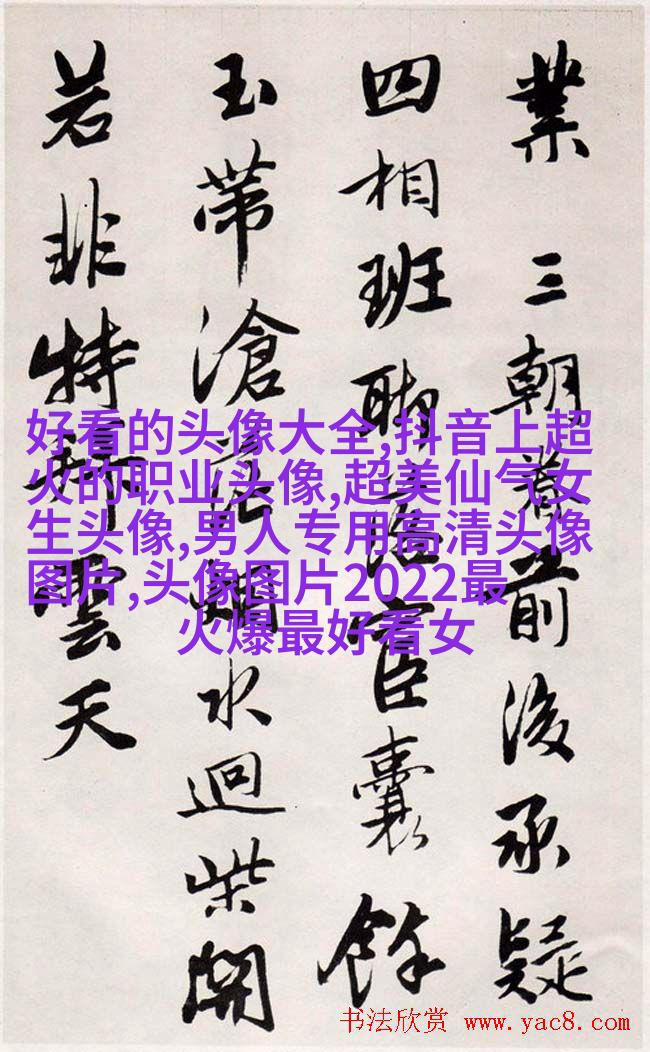 業三朝著前後承疑
四相班聯宦囊餘
玉帶滄茫水迴柴開
若非特雲天
好看的头像大全,抖音上超
火的职业头像,超美仙气女
生头像,男人专用高清头像
图片,头像图片2022最
火爆最好看女
书法欣赏 www.yac8.com